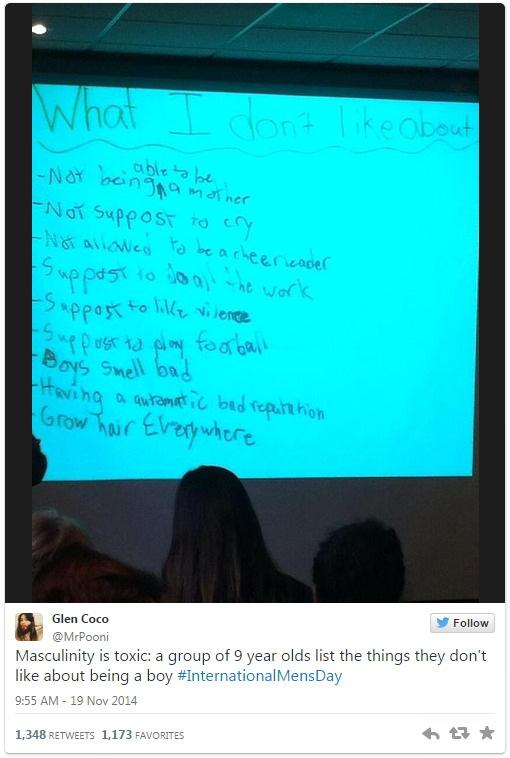 What I don't like about
-Not being able to be a mother
-Not suppost to cry
-Not allowed to be a cheerleader
-Suppost to do all the work
-Suppost to like vilence
-Suppost to play football
-Boys smell bad
-Having a automatic bad reputation
-Grow hair Everywhere
Glen Coco
@MrPooni
Follow
Masculinity is toxic: a group of 9 year olds list the things they don't
like about being a boy #InternationalMensDay
9:55 AM - 19 Nov 2014
1,348 RETWEETS 1,173 FAVORITES